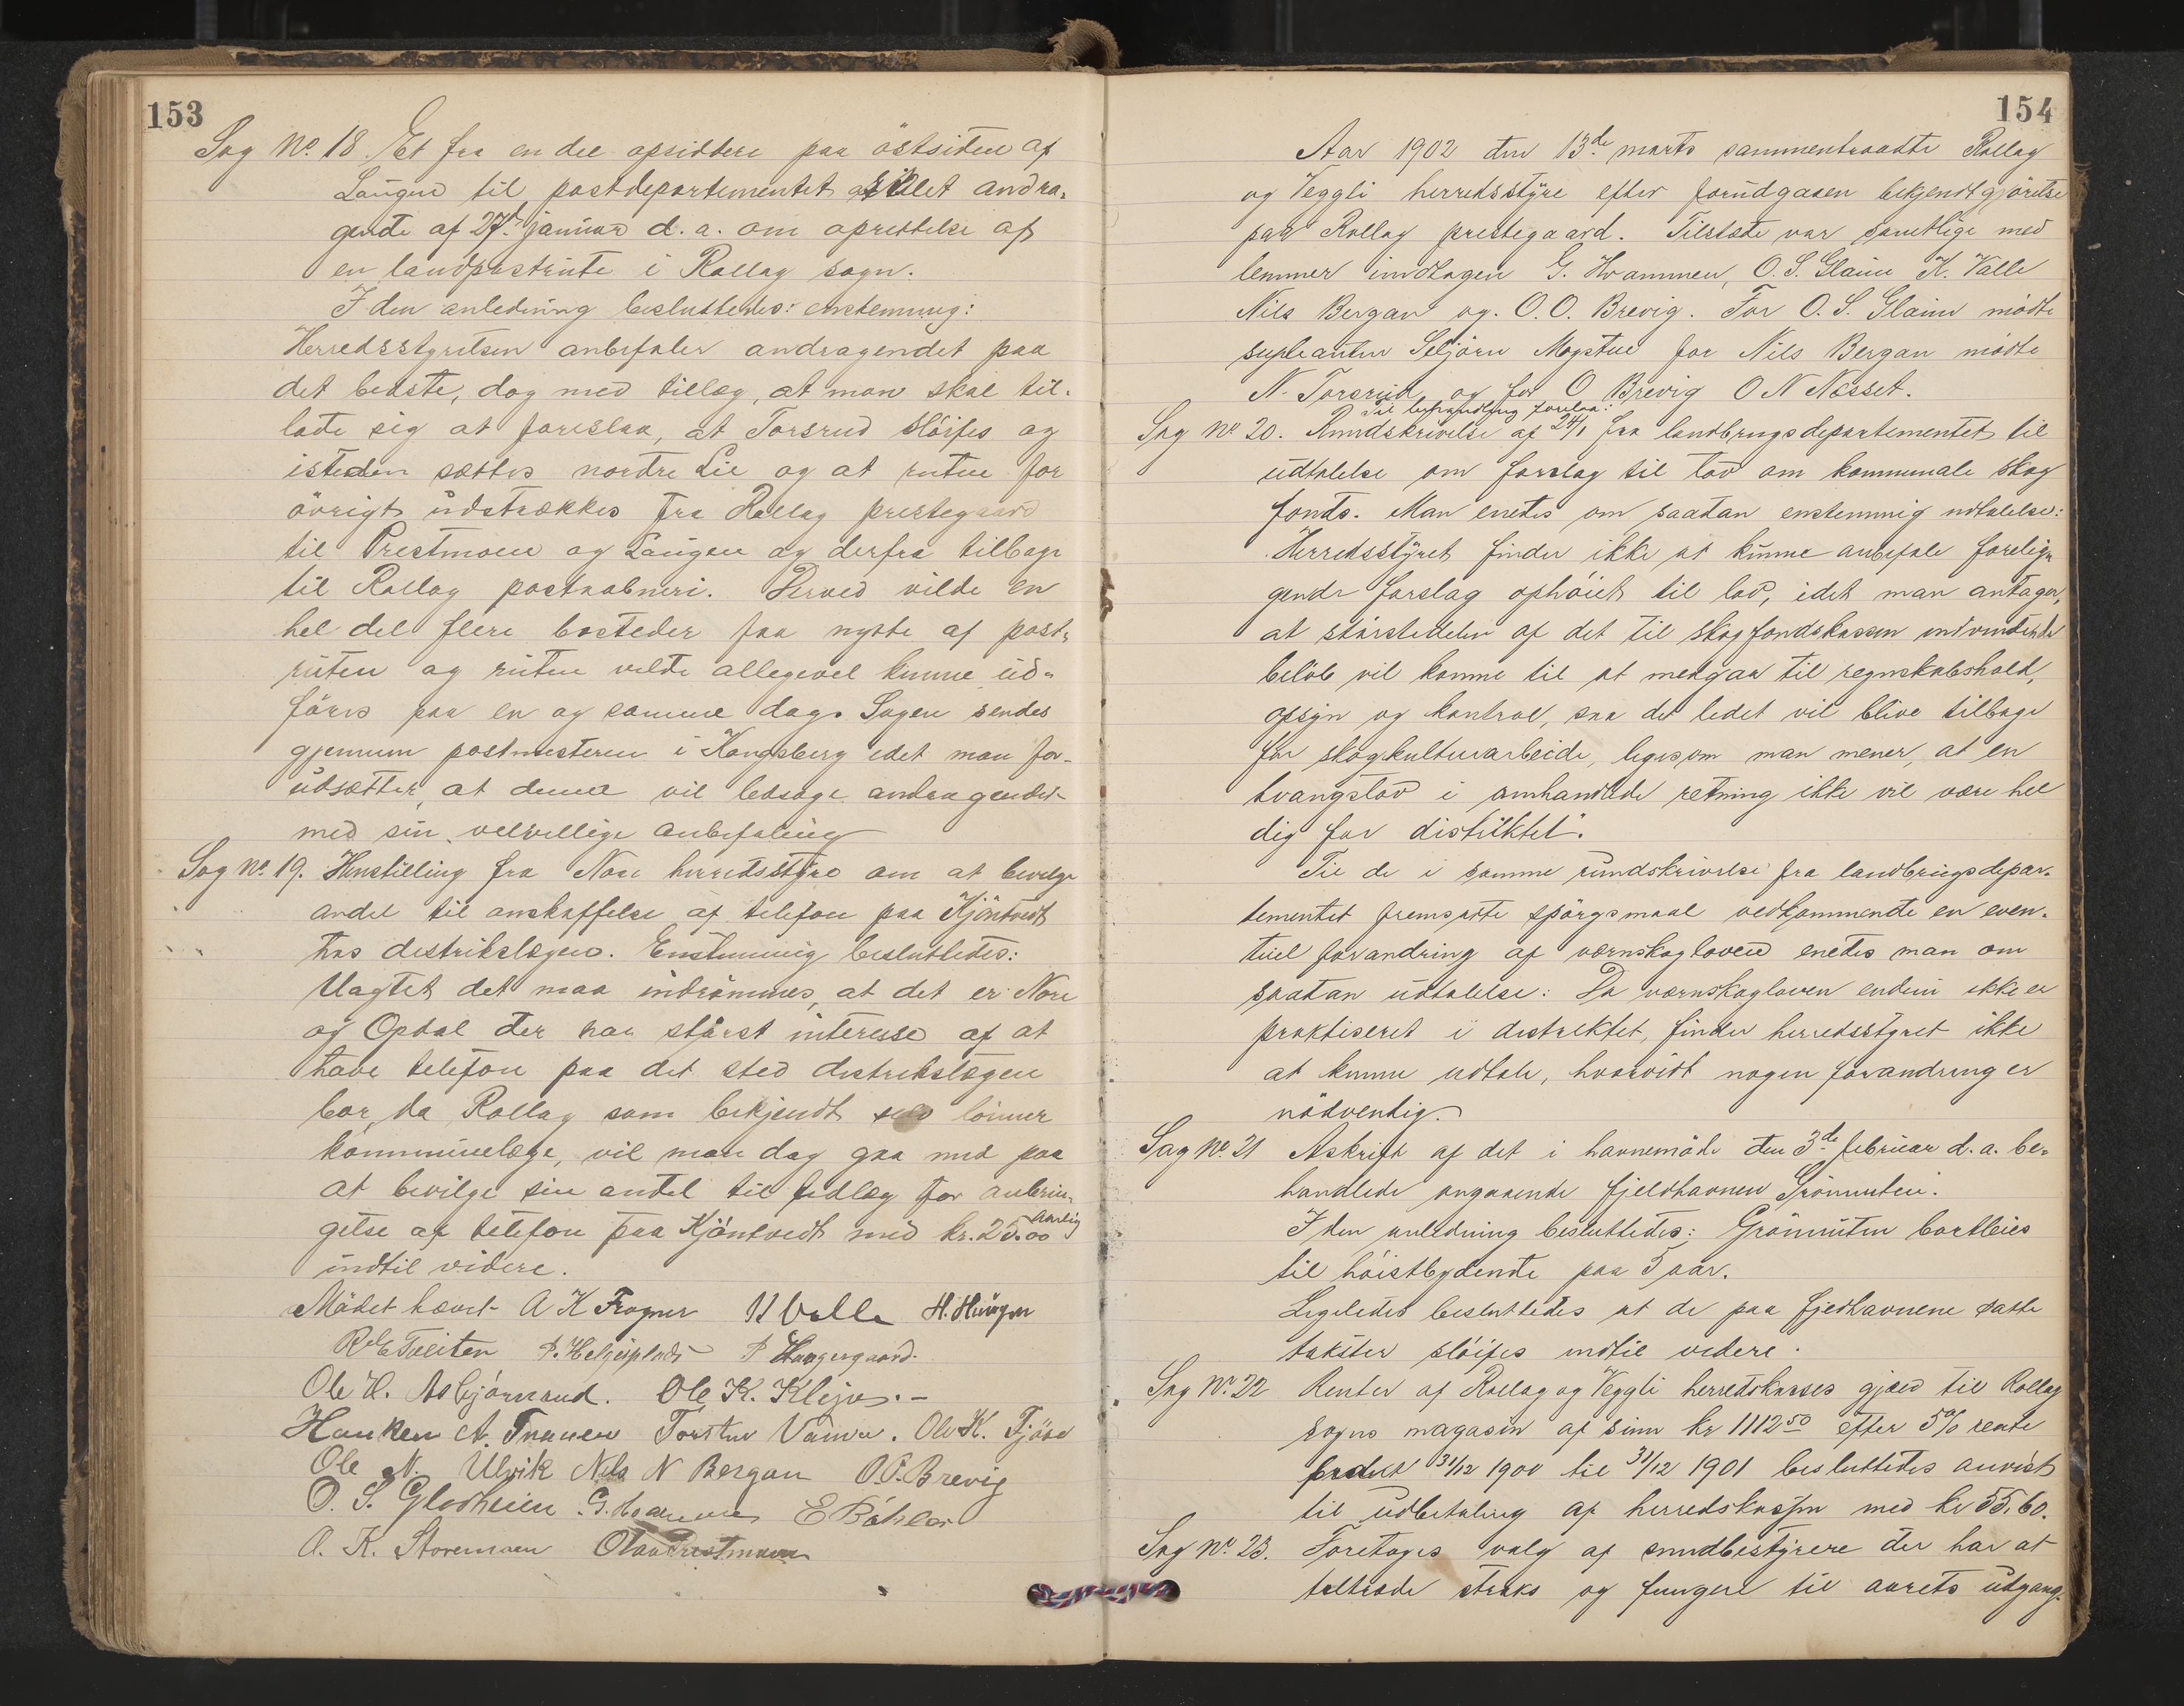 153
Sag No. 18. Et fra en del opsiddere paa östsiden af
Laugen til postdepartementet stilet andra-
gende af 27de januar d. a. om oprettelse af
en landpostrute i Rollag sogn.
I den anledning besluttedes enstemmig:
Herredsstyrelsen anbefaler andragendet paa
det bedste, dog med tillæg, at man skal til-
lade sig at foreslaa, at Torsrud slöifes og
isteden sættes nordre Lie og at ruten for
övrigt udstrækkes fra Rollag prestegaard
til Prestmoen og Laugen og derfra tilbage
til Rollag postaabneri. Derved vilde en
hel del flere bosteder faa nytte af post-
ruten og ruten vilde allegevel kunne ud-
föres paa en og samme dag. Sagen sendes
gjennem postmesteren i Kongsberg idet man for-
udsætter, at denne vil ledsage andragendet
med sin velvillige anbefaling
Sag No. 19. Henstilling fra Nore herredsstyre om at bevilge
andel til anskaffelse af telefon paa Kjöntvedt
hos distrikslægen. Enstemmig besluttedes:
Uagtet det maa indrömmes, at det er Nore
og Opdal der har störst interesse af at
have telefon paa det sted distrikslægen
bor, da Rollag som bekjendt selv lönner
kommunelæge, vil man dog gaa med paa
at bevilge sin andel til tidlæg for anbrin-
gelse af telefon paa Kjöntvedt med kr. 25.00 aarlig
indtil videre.
Mödet hævet A K Fragner K Valle H. Haugen
P. Helgeplads P Haugergaard.
Ole H. Asbjörnsrud. Ole K. Klejva. -
Haaken A. Traaen Torsten Vamen. Ole K. Fjöse
Ole N. Ulvik Nils N Bergan O.O. Brevig
O. S. Gladheim G. Hvammen E Böhler
A. K. Storemoen Olav Prestmoen
154
Aar 1902 den 13de marts sammentraadte Rollag
og Veggli herredsstyre efter forudgaaen bekjendtgjörelse
paa Rollag prestegaard. Tilstede var samtlige med
lemmer undtagen G. Hvammen, O. S. Glaim K. Valle
Nils Bergan og O.O. Brevig. For O. S. Glaim mödte
supleanten Seljörn Mogstue for Nils Bergan mödte
N. Torsrud og for O Brevig O N Næsset.
Til behandling forelaa:
Sag No. 20. Rundskrivelse af 24/1 fra landbrugsdepartementet til
udtalelse om forslag til lov om kommunale skog
fonds. Man enedes om saadan enstemmig udtalelse:
"Herredsstyret finder ikke at kunne anbefale forelig-
gende forslag ophöiet til lov, idet man antager,
at störstedelen af det til skogfondskassen indvundende
belöb vil komme til at medgaa til regnskabshold,
opsyn og kontrol, saa det lidet vil blive tilbage
for skogkulturarbeide, ligesom man mener, at en
tvangslov i omhandlede retning ikke vil være hel
dig for distriktet".
Til de i samme rundskrivelse fra landbrugsdepar-
tementet fremsatte spörgsmaal vedkommende en even-
tuel forandring af værnskogloven enedes man om
saadan udtalelse: Da værnskogloven endnu ikke er
praktiseret i distriktet, finder herredsstyret ikke
at kunne udtale, hvorvidt nogen forandring er
nödvendig.
Sag No. 21 Afskrift af det i havnemöde den 3de februar d. a. be-
handlede angaaende fjeldhavnen Grönnuten.
I den anledning besluttedes: Grönnuten bortleies
til höistbydende paa 5 aar.
Ligeledes besluttedes at de paa fjeldhavnene satte
takster slöifes indtil videre.
Sag No. 22 Renter af Rollag og Veggli herredskasses gjæld til Rollag
sogns magasin af sum kr 1112 50 efter 5% rente
fra 31/12 1900 til 31/12 1901 besluttedes anvist
til udbetaling af herredskassen med kr 55,60.
Sag No. 23. Foretoges valg af sundbestyrere der har at
tiltræde straks og fungere til aarets udgang.